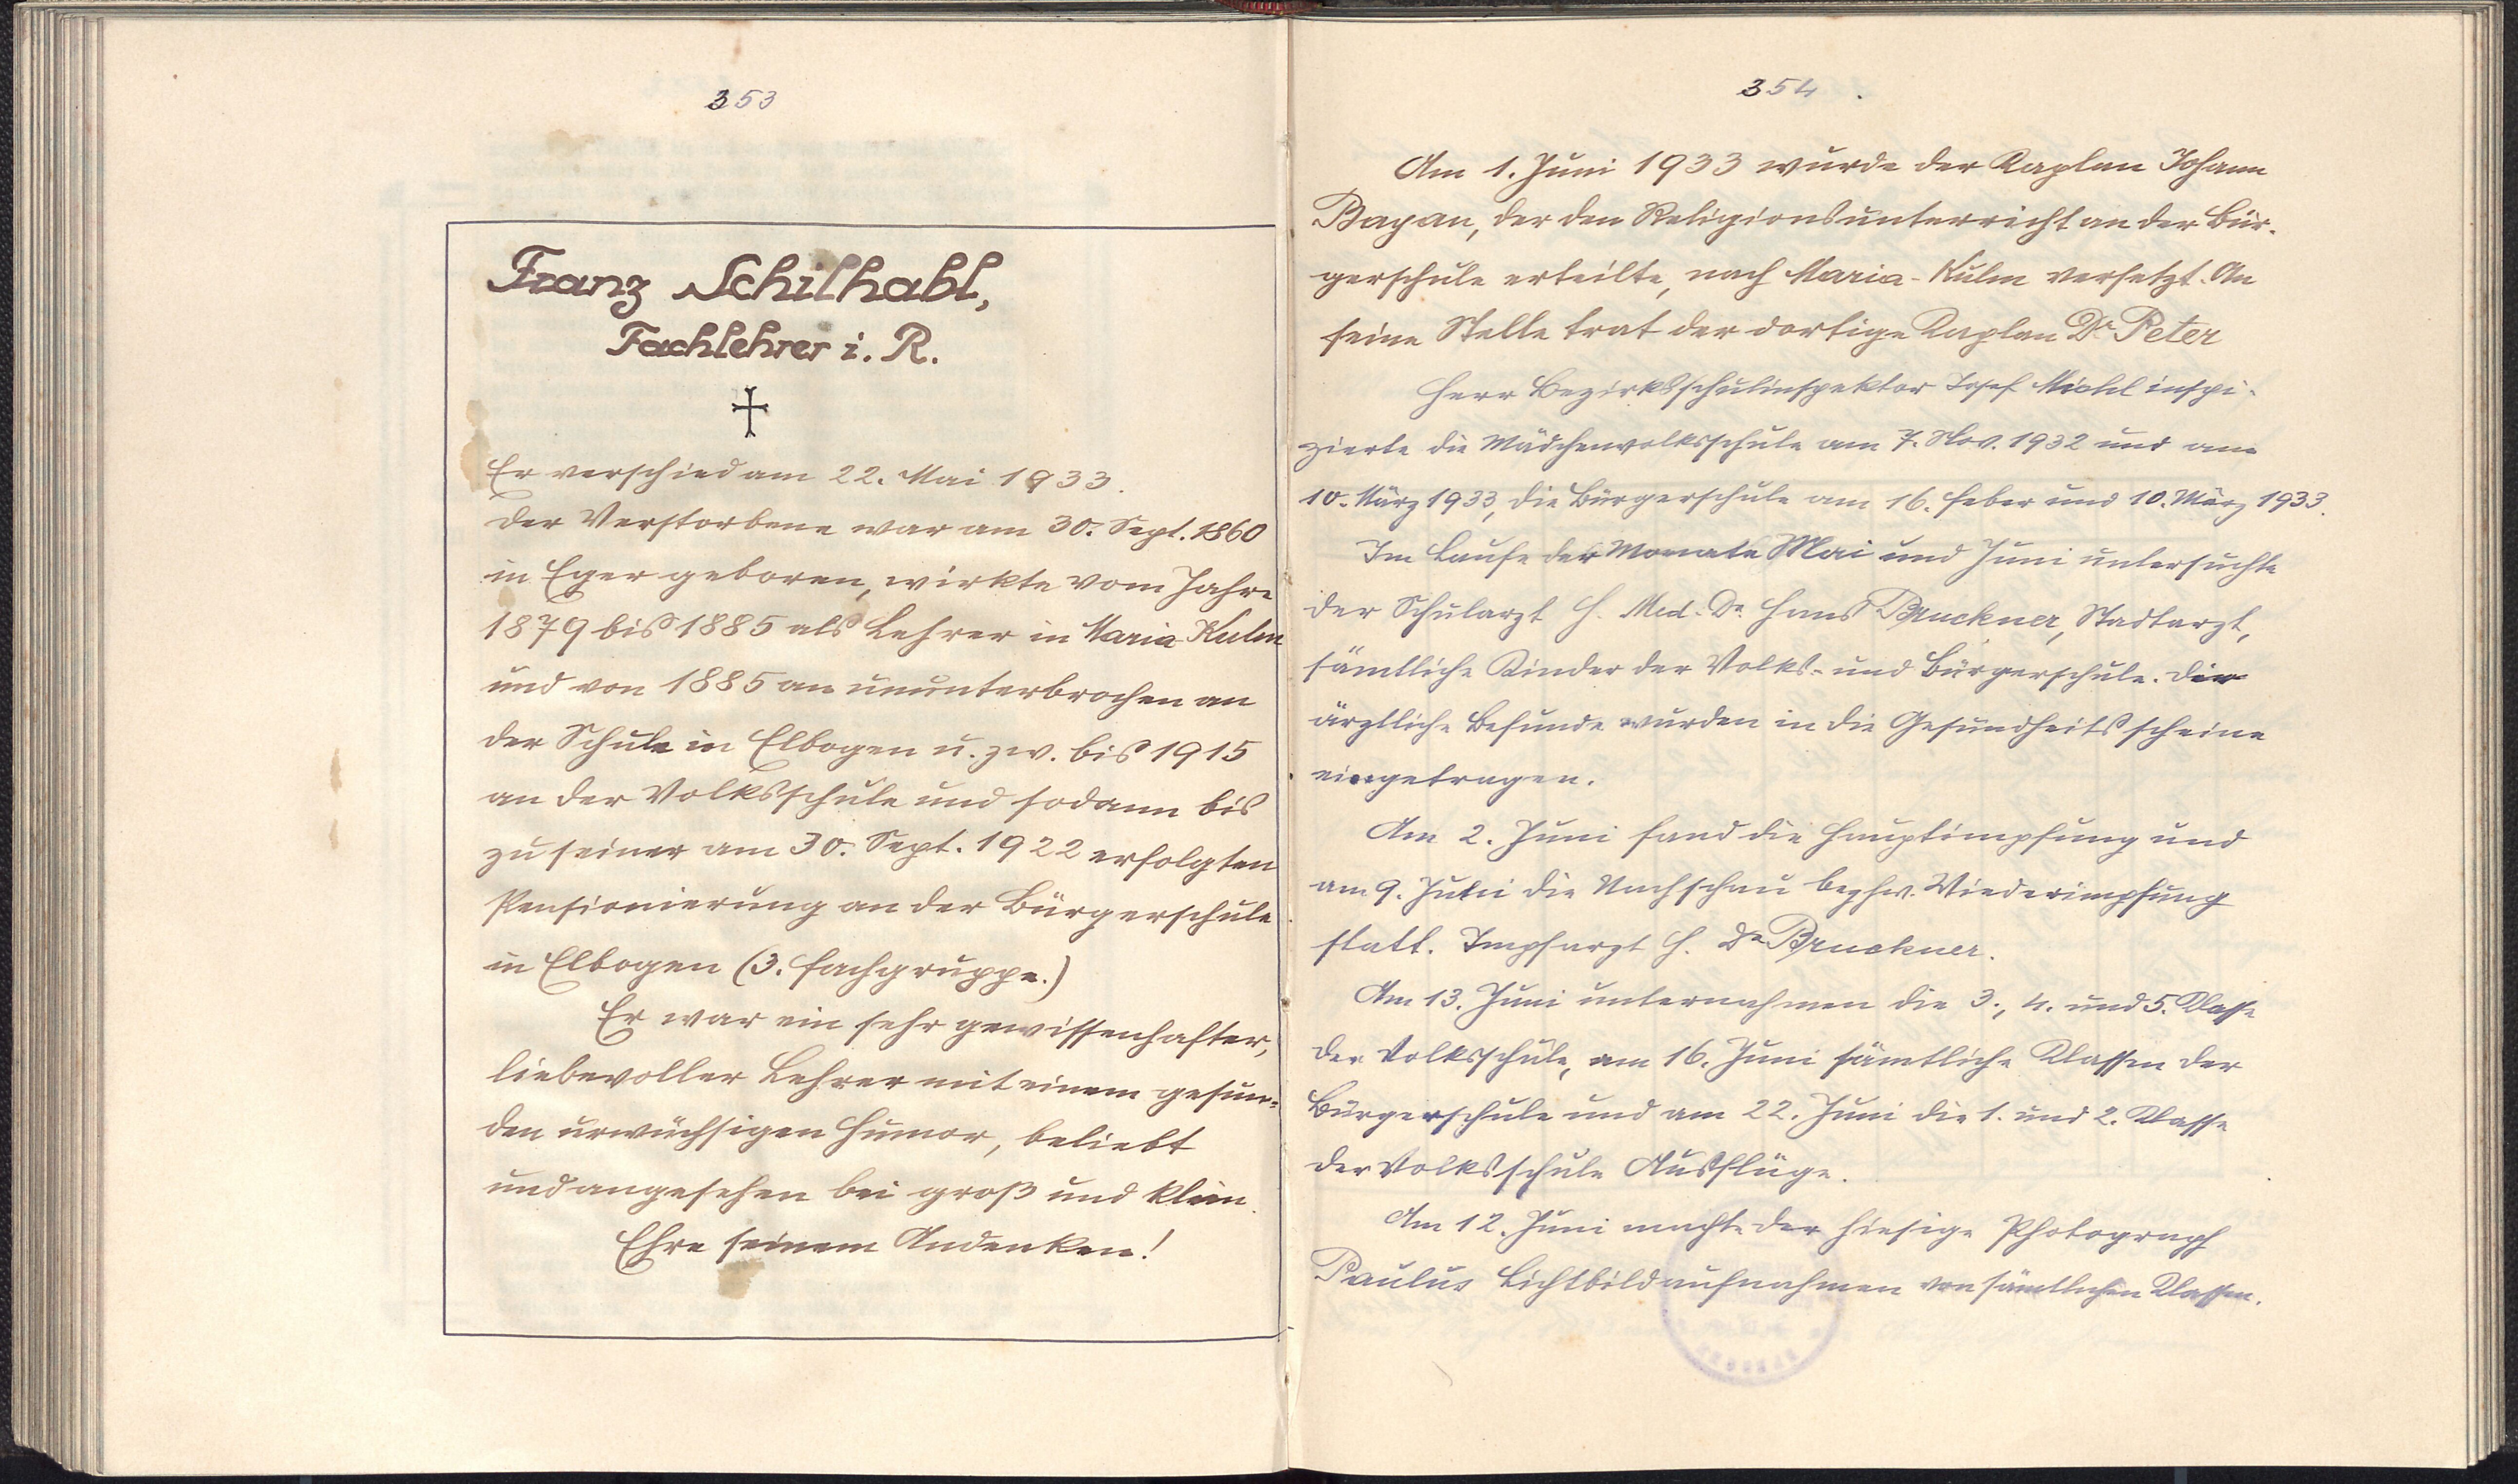 353
Franz Schilhabl,
Fachlehrer i. R.
Er verschied am 22. Mai 1933.
Der Verstorbene war am 30. Sept. 1860
in Eger geboren, wirkte vom Jahre
1879 bis 1885 als Lehrer in Maria Kulm
und von 1885 an ununterbrochen an
der Schule in Elbogen u. zw. bis 1915
an der Volksschule und sodann bis
zu seiner am 30. Sept. 1922 erfolgten
Pensionierung an der Bürgerschule
in Elbogen (3. Fachgruppe.)
Er war ein sehr gewissenhafter,
liebevoller Lehrer mit einem gesun-
den urwüchsigen Humor, beliebt
und angesehen bei groß und klein.
Ehre seinem Andenken!
354
Am 1. Juni 1933 wurde der Kaplan Johann
Bayan, der den Religionsunterricht an der Bür-
gerschule erteilte, nach Maria-Kulm versetzt. An
seine Stelle trat der dortige Kaplan Dr. Peter
Herr Bezirksschulinspektor Josef Michl inspi-
zierte die Mädchenvolksschule am 7. Nov. 1932 und am
10. März 1933, die Bürgerschule am 16. Feber und 10. März 1933.
Im Laufe der Monate Mai und Juni untersuchte
der Schularzt H. Med. Dr. Hans Bruckner, Stadtarzt,
sämtliche Kinder der Volks- und Bürgerschule. Die
ärztliche Befunde wurden in die Gesundheitsscheine
eingetragen.
Am 2. Juni fand die Hauptimpfung und
am 9. Juni die Nachschau bezhw. Wiederimpfung
statt. Impfarzt H. Dr. Bruckner.
Am 13. Juni unternahmen die 3., 4. und 5. Klasse
der Volksschule, am 16. Juni sämtliche Klassen der
Bürgerschule und am 22. Juni die 1. und 2. Klasse
der Volksschule Ausflüge.
Am 12. Juni machte der hiesige Photograph
Paulus Lichtbildaufnahmen von sämtlichen Klassen.